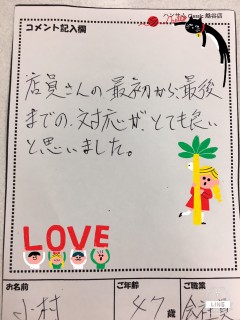 コメント記入欄
店員さんの最初から、最後
までの、対応が、とても良い
と思いました。
LOVE
お名前
ご年齢
ご職業
小村
47
歳
会社員
LINE